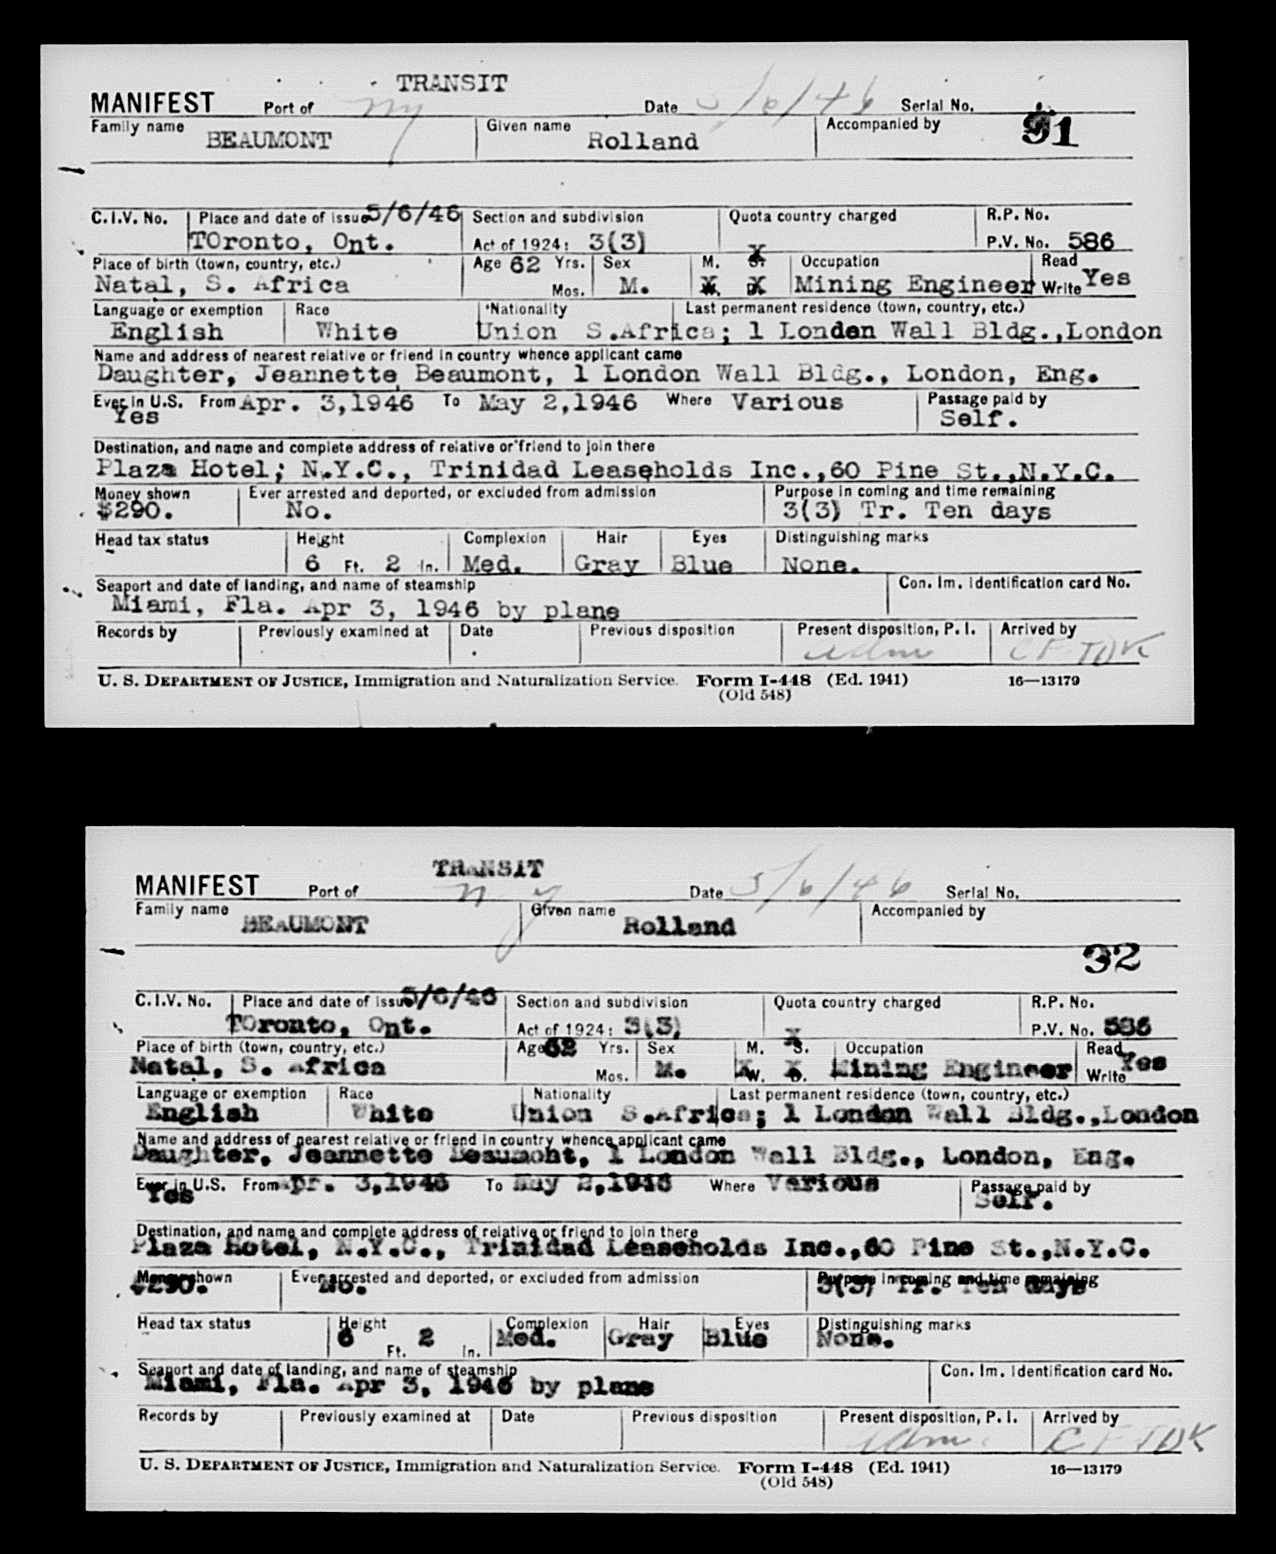 TRANSIT
MANIFEST Port of NY Date 5/6/46 Serial No.
Family name BEAUMONT Given name Rolland Accompanied by 31
C.I.V. No. Place and date of issue 5/6/46 Section and subdivision Quota country charged R.P. No.
TOronto, Ont. Act of 1924: 3(3) P.V. No. 586
Place of birth (town, country, etc.) Age 62 Yrs. Sex M. S. Occupation Read
Natal, S. Africa Mos. M. W. D. Mining Engineer Write Yes
Language or exemption Race Nationality Last permanent residence (town, country, etc.)
English White Union S.Africa; 1 London Wall Bldg.,London
Name and address of nearest relative or friend in country whence applicant came
Daughter, Jeannette Beaumont, 1 London Wall Bldg., London, Eng.
Ever in U.S. From Apr. 3,1946 To May 2,1946 Where Various Passage paid by
Yes Self.
Destination, and name and complete address of relative or friend to join there
Plaza Hotel; N.Y.C., Trinidad Leaseholds Inc.,60 Pine St.,N.Y.C.
Money shown Ever arrested and deported, or excluded from admission Purpose in coming and time remaining
$290. No. 3(3) Tr. Ten days
Head tax status Height Complexion Hair Eyes Distinguishing marks
6 Ft. 2 In. Med. Gray Blue None.
Seaport and date of landing, and name of steamship Con. Im. Identification card No.
Miami, Fla. Apr 3, 1946 by plane
Records by Previously examined at Date Previous disposition Present disposition, P. I. Arrived by
adm
U. S. DEPARTMENT OF JUSTICE, Immigration and Naturalization Service. Form I-448 (Ed. 1941) 16—13179
(Old 548)
TRANSIT
MANIFEST Port of NY Date 5/6/46 Serial No.
Family name BEAUMONT Given name Rolland Accompanied by
32
C.I.V. No. Place and date of issue 5/6/46 Section and subdivision Quota country charged R.P. No.
TOronto, Ont. Act of 1924: 3(3) P.V. No. 586
Place of birth (town, country, etc.) Age 62 Yrs. Sex M. S. Occupation Read
Natal, S. Africa Mos. M. W. D. Mining Engineer Write Yes
Language or exemption Race Nationality Last permanent residence (town, country, etc.)
English White Union S.Africa; 1 London Wall Bldg.,London
Name and address of nearest relative or friend in country whence applicant came
Daughter, Jeannette Beaumont, 1 London Wall Bldg., London, Eng.
Ever in U.S. From Apr. 3,1946 To May 2,1946 Where Various Passage paid by
Yes Self.
Destination, and name and complete address of relative or friend to join there
Plaza Hotel, N.Y.C., Trinidad Leaseholds Inc.,60 Pine St.,N.Y.C.
Money shown Ever arrested and deported, or excluded from admission Purpose in coming and time remaining
$290. No. 3(3) Tr. Ten days
Head tax status Height Complexion Hair Eyes Distinguishing marks
6 Ft. 2 In. Med. Gray Blue None.
Seaport and date of landing, and name of steamship Con. Im. Identification card No.
Miami, Fla. Apr 3, 1946 by plane
Records by Previously examined at Date Previous disposition Present disposition, P. I. Arrived by
adm
U. S. DEPARTMENT OF JUSTICE, Immigration and Naturalization Service. Form I-448 (Ed. 1941) 16—13179
(Old 548)